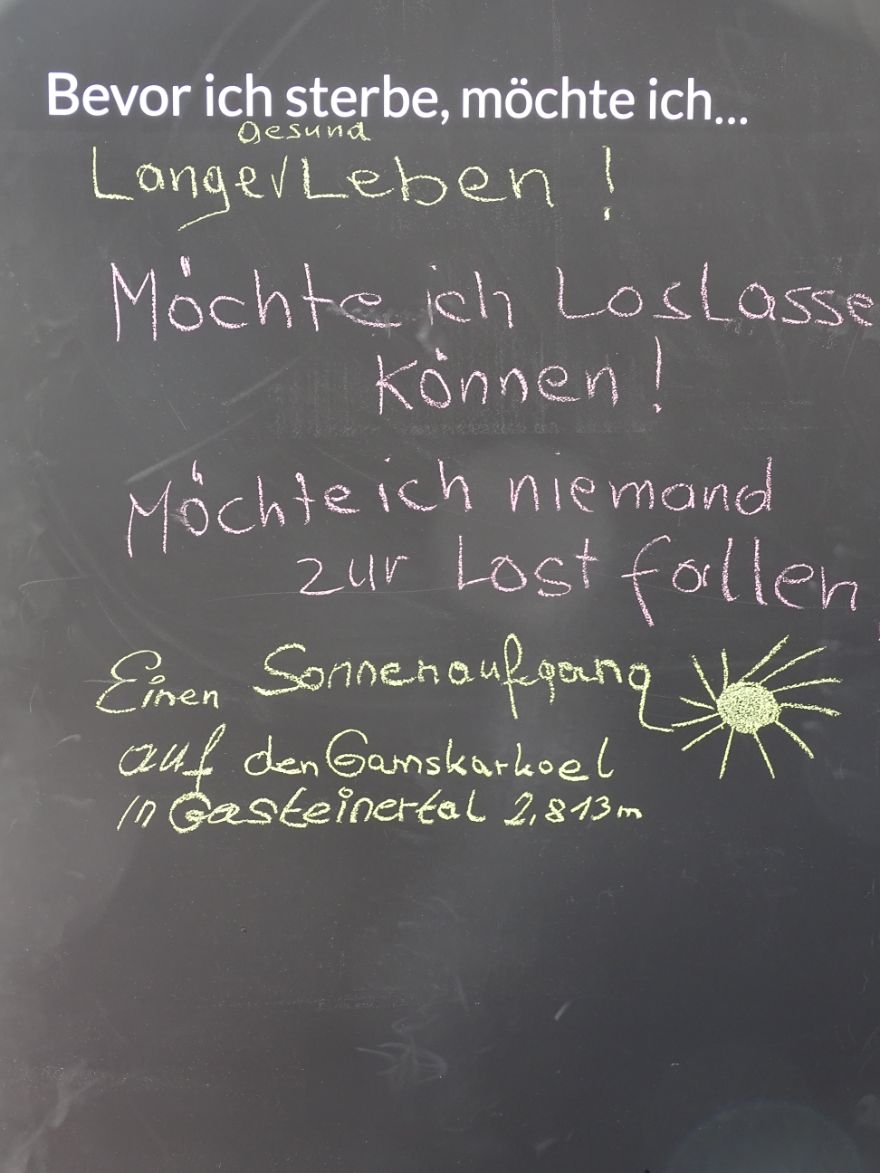 Bevor ich sterbe, möchte ich...
gesund
Langer Leben !
Möchte ich Loslasse
können !
Möchte ich niemand
zur Last fallen
Einen Sonnenaufgang
auf den Gamskarkoel
in Gasteinertal 2,813m